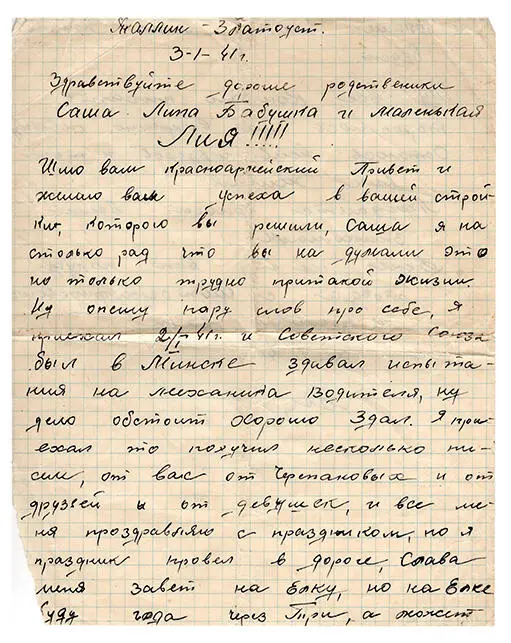 Таллин - Златоуст.
3-1-41г.
Здравствуйте дороше родственики
Саша Липа Бабушка и Маленькая
Лия!!!!!
Шлю вам Красноармейский Привет и
желаю вам успеха в вашей строй
ки, которого вы решили, Саша я на
столько рад что вы на думали это
но только трудно притакой жизни.
Ну опешу пару слов про себе, Я
приехал 2/I 41г. и Советского Союза
был в Минске здивал испыта
ния на механика Водителя, ну
дело обстоит хорошо Здал. Я при-
ехал то получил несколько пи-
сем, от вас от Черепановых и от
друзей ы от девушек, и все ме-
ня проздравляю с праздником, но я
праздник провел в дороге, Слава
меня завет на Елку, но на Елке
буду года через Три, а может